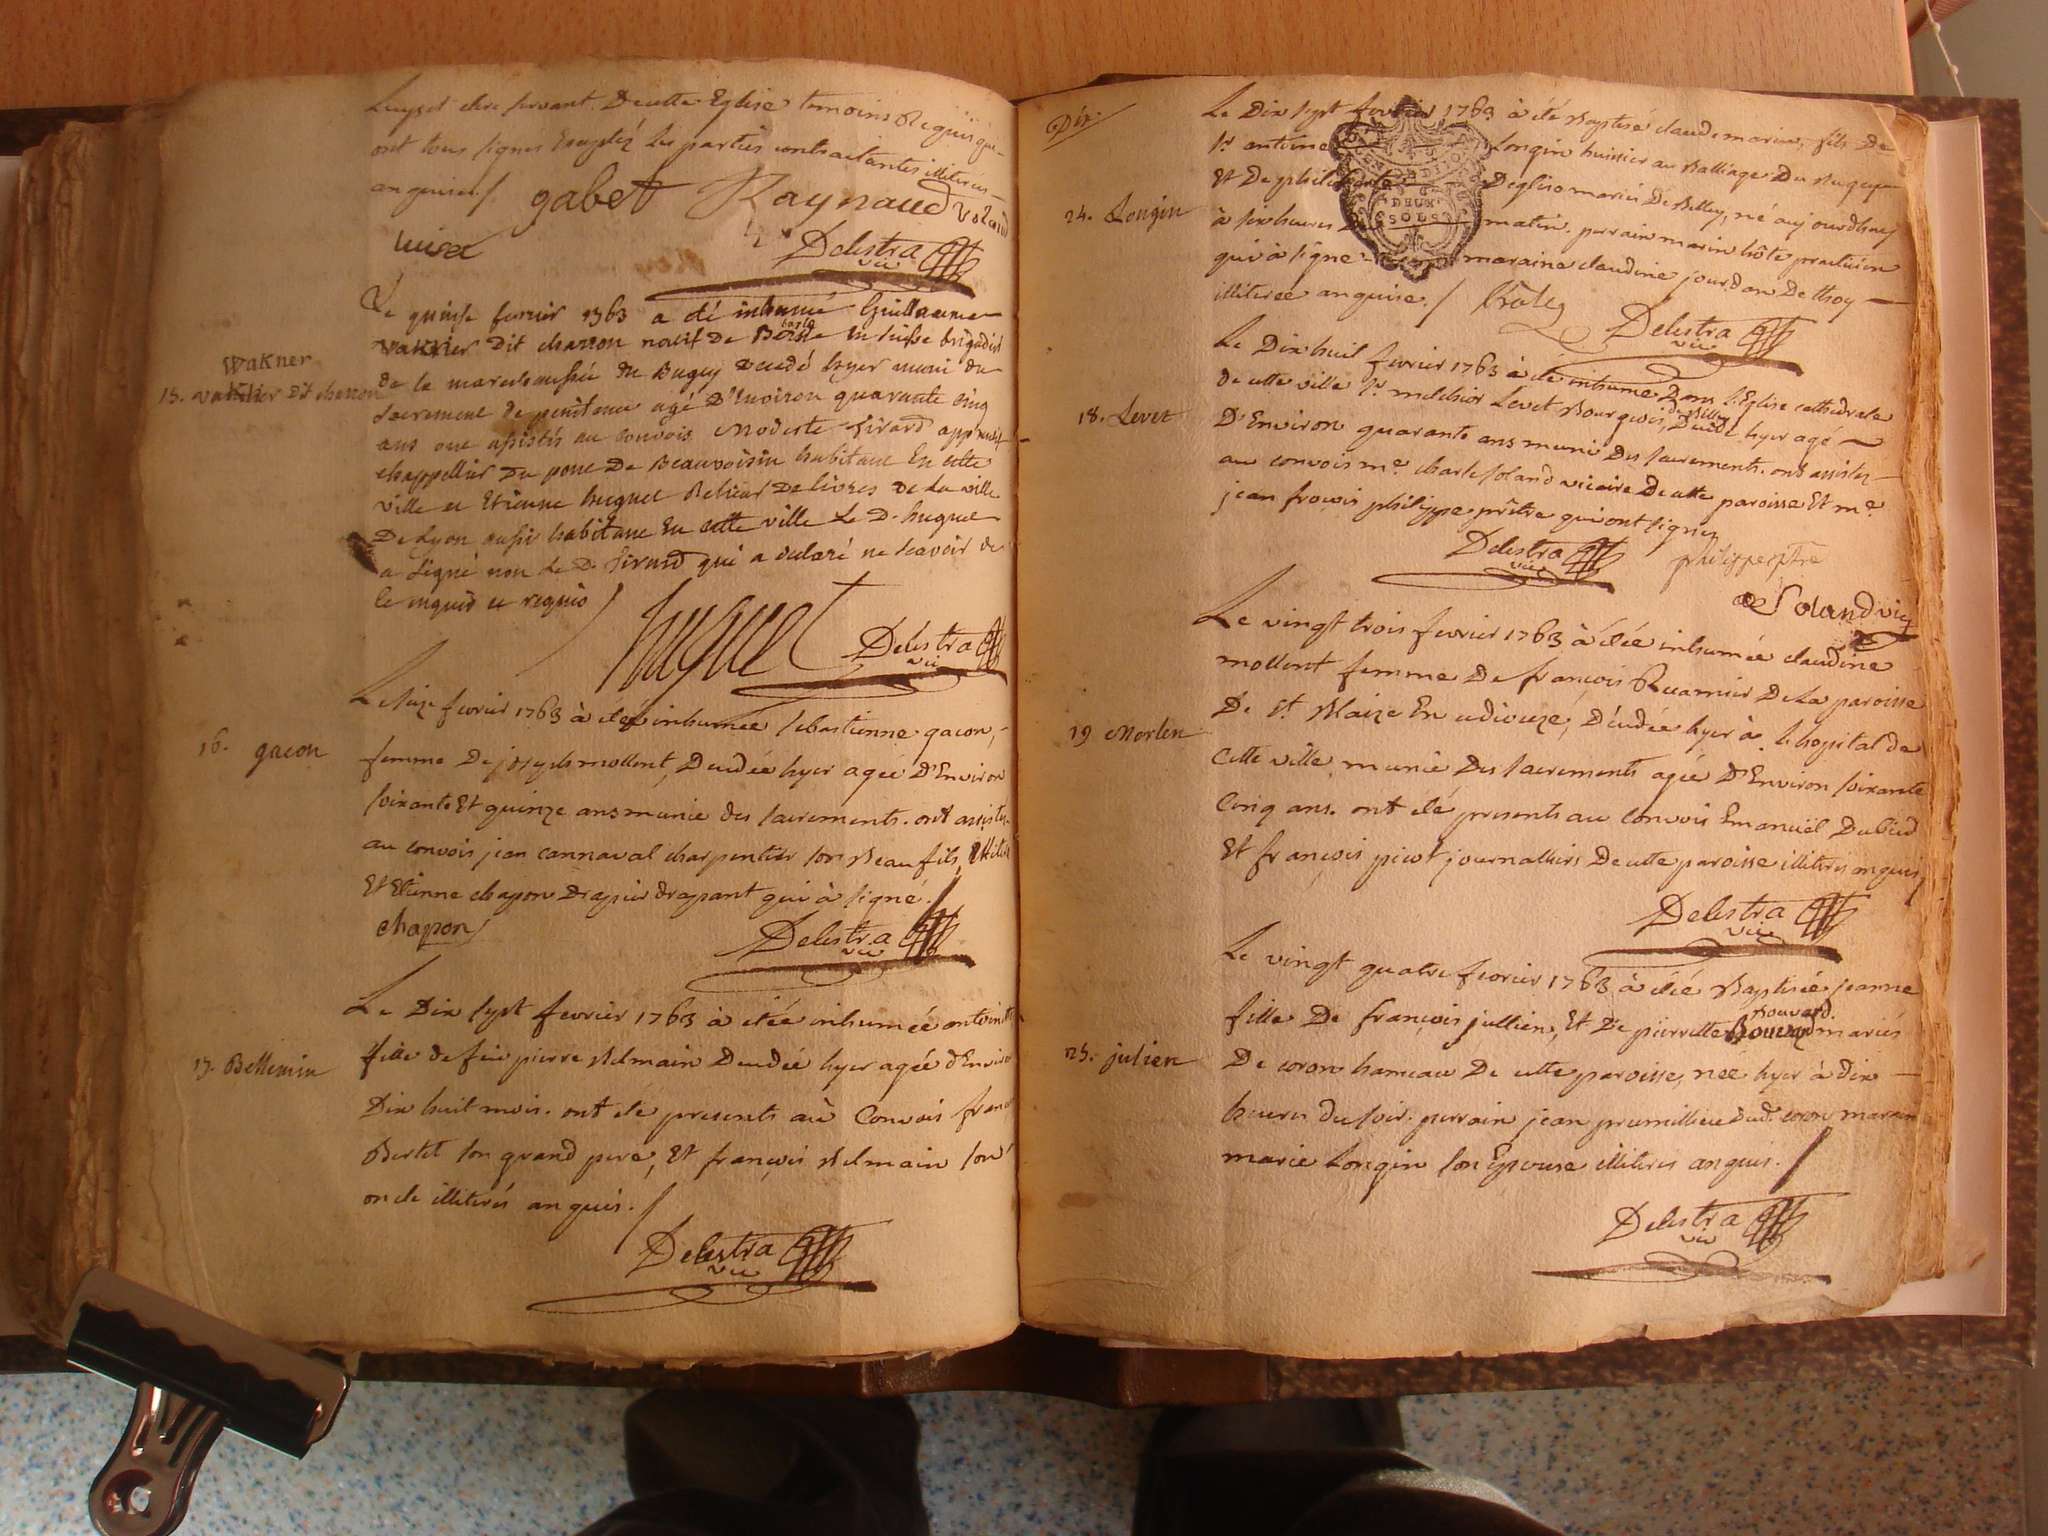 servant. De cette Eglise temoins Requis qui
ont tous signes Excepté Les parties contractantes illiterés
enquises /. gabet Raynaud Voland
Delestra
vic
Le quinse fevrier 1763 a été inhumé Guillaume
dit charron natif de Basle en suisse brigadier
Wakner
15. dit charron
de la marechaussée du Bugey decedé hyer muni du
sacrement de penitence agé D'Environ quarante cinq
ans ont assistés au convois Modeste Girard apprentif
chappellier Du pont De Beauvoisin habitant En cette
ville et Etienne huguet Relieur De livres de La ville
De Lyon aussi habitant En cette ville Le D. huguet
a signé non Le D. Girard qui a declaré ne scavoir de
ce enquis et requis /
huguet Delestra
vic
Le seize fevrier 1763 à étée inhumée sebastienne gacon,
16. gacon
femme De joseph mollent, Decedée hyer agée D'Environ
soixante Et quinze ans munie des sacrements. ont assistes
au convois jean cannaval charpentier son Beau fils,
Et Etienne chapon Drapier drapant qui à signé. /
chapon Delestra
vic
Le Dix sept fevrier 1763 à étée inhumée
17. Bellemin
fille de feu pierre Belmain Decedée hyer agée d'Environ
Dix huit mois. ont été presents au Convois
Bertet son grand pere, Et françois Belmain son
oncle illiterés enquis. /
Delestra
vic
Dix.
Le Dix sept fevrier 1763 à été Baptisé claude marin, fils De
sr antoine Longin huissier au Balliage Du Bugey
DEUX
SOLS
Et De Deglise mariés De Belley, né aujourdhuy
24. Longin
à six heures Du matin. parrain marin hôte praticien
qui à signé maraine claudine jourdan De
illiterée enquise. / hôte
Delestra
vic
Le Dix huit fevrier 1763 à été inhumé Dans L'Eglise cathedrale
de cette ville sr. melchior Levet Bourgeois de Belley, Decedé hyer agé
18. Levet
D'Environ quarante ans muni Des sacrements. ont assistes
au convois me. charle soland vicaire De cette paroisse Et me.
jean françois philippe prêtre qui ont signes
Delestra
vic
philippe ptre
Soland vic
Le vingt trois fevrier 1763 à étée inhumée claudine
mollent femme De françois Ruamier De La paroisse
De st. Blaize En, Decedée hyer à L'hopital de
19 Morlen
Cette ville, munie Des sacrements agée D'Environ soixante
Cinq ans. ont été presents au convois Emanuël
Et françois picot journalliers De cette paroisse illiterés enquis /
Delestra
vic
Le vingt quatre fevrier 1763 à étée Baptisée jeanne
fille De françois jullien, Et De pierrette Bouvard mariés
25. julien
De coron hameau De cette paroisse, née hyer à dix
heures du soir. parrain jean prumillieu dud. coron maraine
marie Longin son Epouse illiterés enquis. /
Delestra
vic